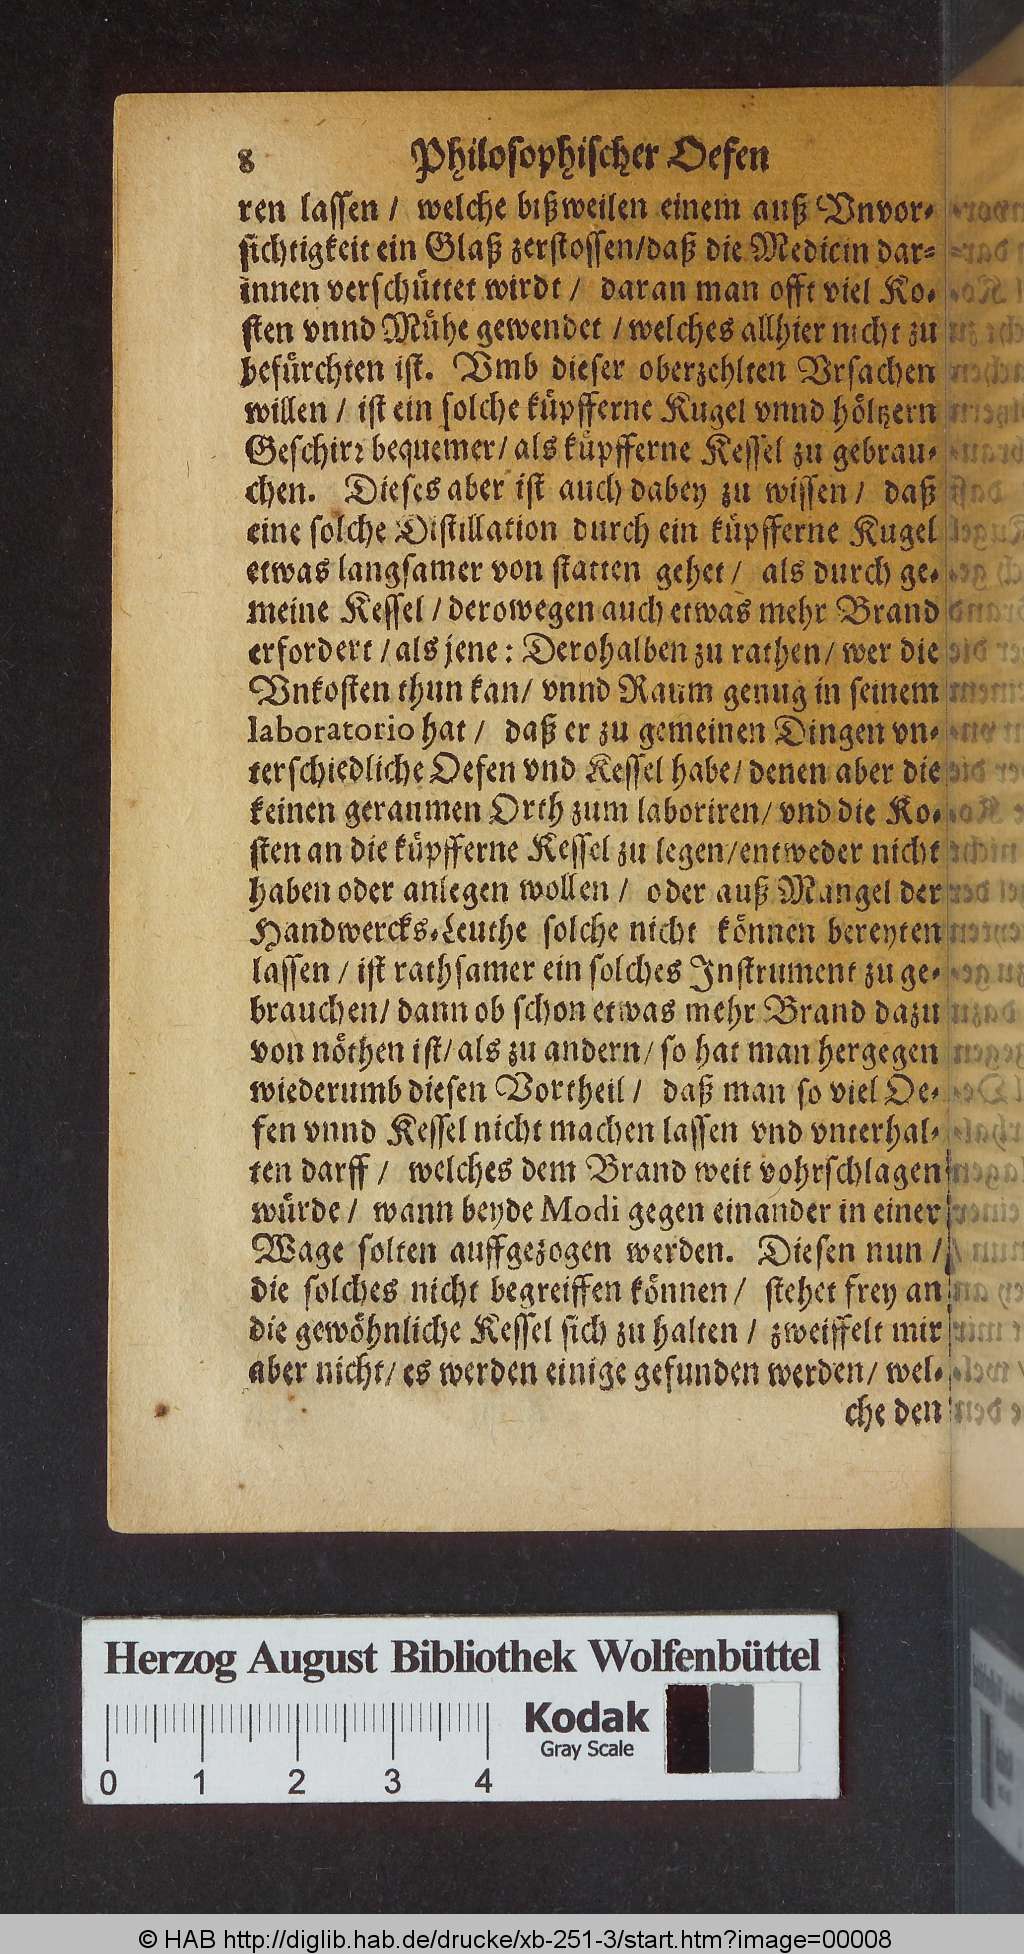 8 Philosophischer Oefen
ren lassen / welche bißweilen einem auß Vnvor-
sichtigkeit ein Glaß zerstossen/daß die Medicin dar-
innen verschüttet wirdt / daran man offt viel Ko-
sten vnnd Mühe gewendet / welches allhier nicht zu
befürchten ist. Vmb dieser oberzehlten Vrsachen
willen / ist ein solche küpfferne Kugel vnnd höltzern
Geschirr bequemer/ als küpfferne Kessel zu gebrau-
chen. Dieses aber ist auch dabey zu wissen / daß
eine solche Distillation durch ein küpfferne Kugel
etwas langsamer von statten gehet / als durch ge-
meine Kessel / derowegen auch etwas mehr Brand
erfordert / als jene : Derohalben zu rathen/ wer die
Vnkosten thun kan/ vnnd Raum genug in seinem
laboratorio hat / daß er zu gemeinen Dingen vn-
terschiedliche Oefen vnd Kessel habe/ denen aber die
keinen geraumen Orth zum laboriren/ vnd die Ko-
sten an die küpfferne Kessel zu legen/entweder nicht
haben oder anlegen wollen / oder auß Mangel der
Handwercks-Leuthe solche nicht können bereyten
lassen / ist rathsamer ein solches Instrument zu ge-
brauchen/ dann ob schon etwas mehr Brand dazu
von nöthen ist/ als zu andern/ so hat man hergegen
wiederumb diesen Vortheil / daß man so viel Oe-
fen vnnd Kessel nicht machen lassen vnd vnterhal-
ten darff / welches dem Brand weit vohrschlagen
würde / wann beyde Modi gegen einander in einer
Wage solten auffgezogen werden. Diesen nun /
die solches nicht begreiffen können / stehet frey an
die gewöhnliche Kessel sich zu halten / zweiffelt mir
aber nicht/ es werden einige gefunden werden/ wel-
che den
Herzog August Bibliothek Wolfenbüttel
Kodak
Gray Scale
0 1 2 3 4
© HAB http://diglib.hab.de/drucke/xb-251-3/start.htm?image=00008